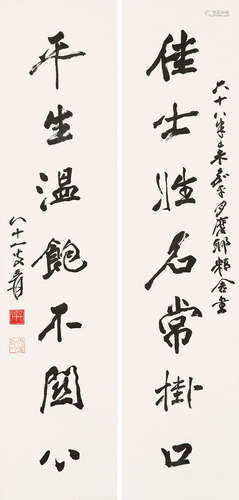 佳士姓名常掛口
平生溫飽不關心
六十八年
八十一叟爰